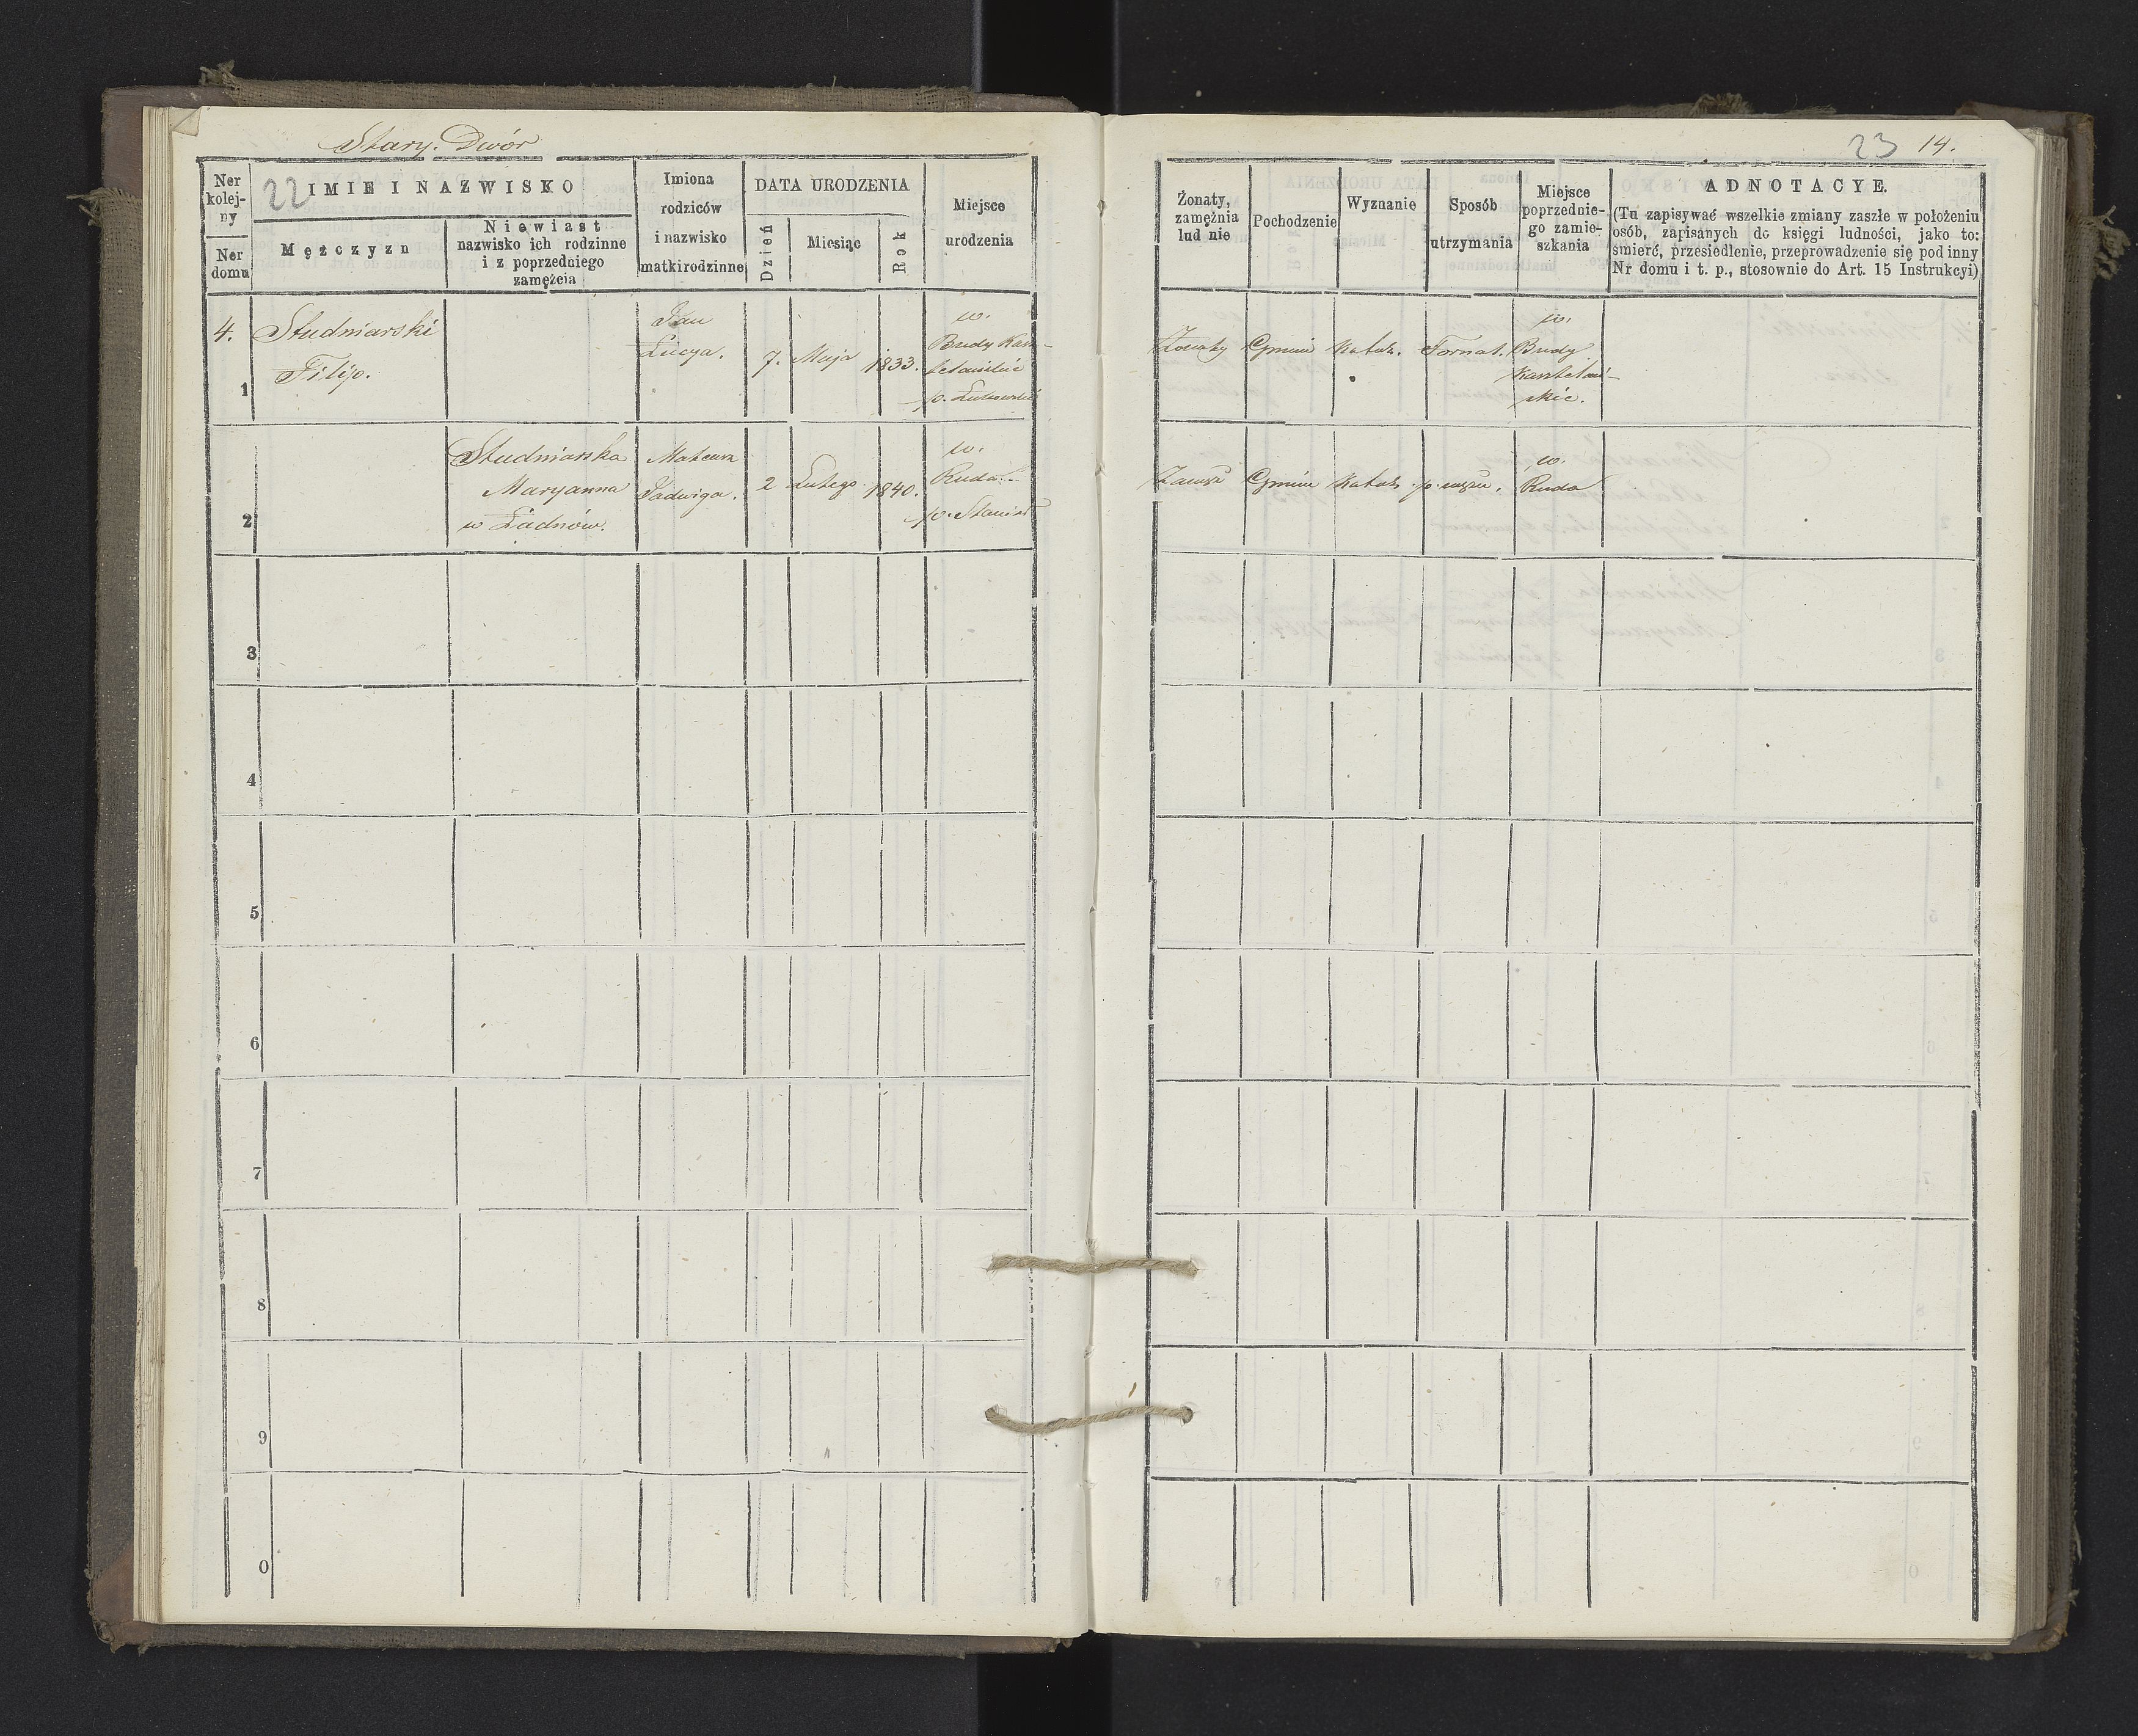 Stary Dwór
22
Ner kolejny
Ner domu
IMIE I NAZWISKO
Mężczyzn
Niewiast
nazwisko ich rodzinne
i z poprzedniego
zamężcia
Imiona
rodziców
i nazwisko
matki rodzinne
DATA URODZENIA
Dzień
Miesiąc
Rok
Miejsce
urodzenia
4.
1
Studniarski
Filip.
Jan
Łucya.
7. Maja 1833.
w.
Budy Kasz-
telańskie
2
Studniarska
Maryanna
w Żadnów.
Mateusz
Jadwiga.
2 Lutego 1840.
w.
Ruda
3
4
5
6
7
8
9
0
23 14.
Żonaty,
zamężnia
lud nie
Pochodzenie
Wyznanie
Sposób
utrzymania
Miejsce
poprzednie-
go zamie-
szkania
ADNOTACYE.
(Tu zapisywać wszelkie zmiany zaszłe w położeniu
osób, zapisanych do księgi ludności, jako to:
śmierć, przesiedlenie, przeprowadzenie się pod inny
Nr domu i t. p., stosownie do Art. 15 Instrukcyi)
Żonaty Gmin Katol. Fornal.
w.
Budy
Kasztelań-
skie.
Gmin Katol. p. mężu.
w.
Ruda